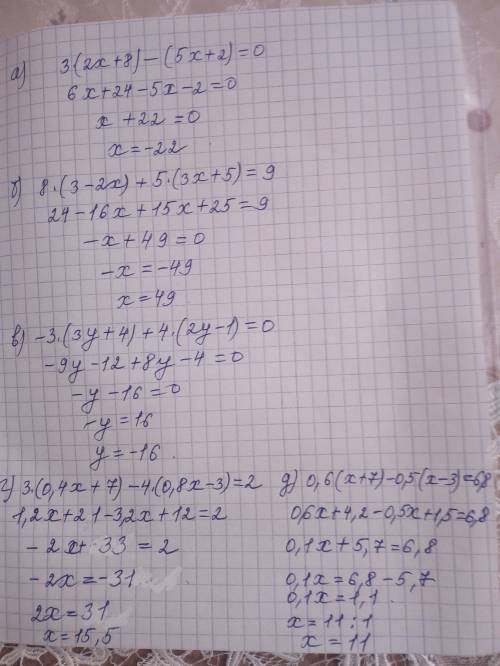 а) 3(2x+8)-(5x+2)=0
6x+24-5x-2=0
x+22=0
x=-22
б) 8·(3-2x)+5·(3x+5)=9
24-16x+15x+25=9
-x+49=0
-x=-49
x=49
в) -3·(3y+4)+4·(2y-1)=0
-9y-12+8y-4=0
-y-16=0
-y=16
y=-16
г) 3·(0,4x+7)-4·(0,8x-3)=2
1,2x+21-3,2x+12=2
-2x+33=2
-2x=-31
2x=31
x=15,5
д) 0,6(x+7)-0,5(x-3)=6,8
0,6x+4,2-0,5x+1,5=6,8
0,1x+5,7=6,8
0,1x=6,8-5,7
0,1x=1,1
x=11:1
x=11